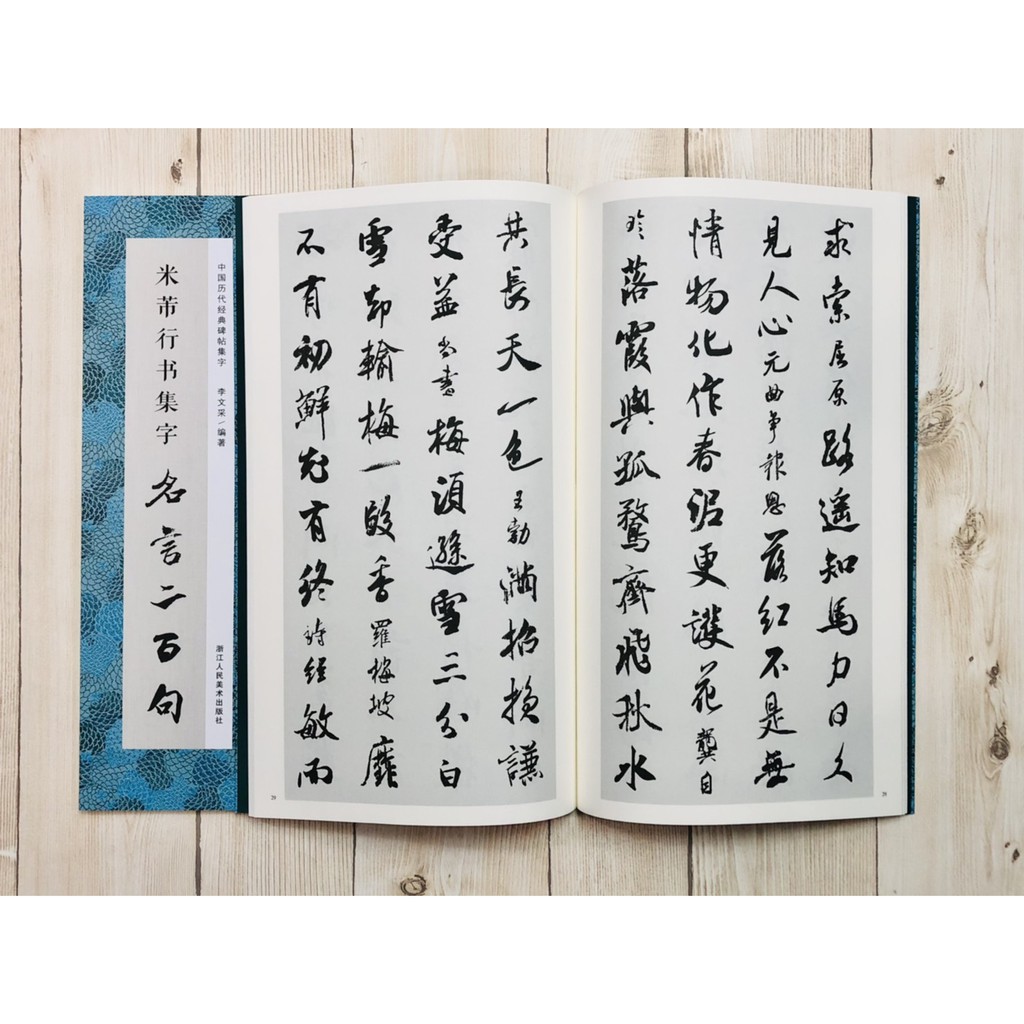 求索屈原路遙知馬力日久
見人心元曲争報恩落紅不是無
情物化作春泥更護花龔自
珍落霞與孤鶩齊飛秋水
28
共長天一色王勃滿招損謙
受益尚書梅須遜雪三分白
雪却輸梅一段香羅梅坡靡
不有初鮮克有終詩經敏而
29
中国历代经典碑帖集字 李文采/编著 浙江人民美术出版社
米芾行书集字 名言二百句